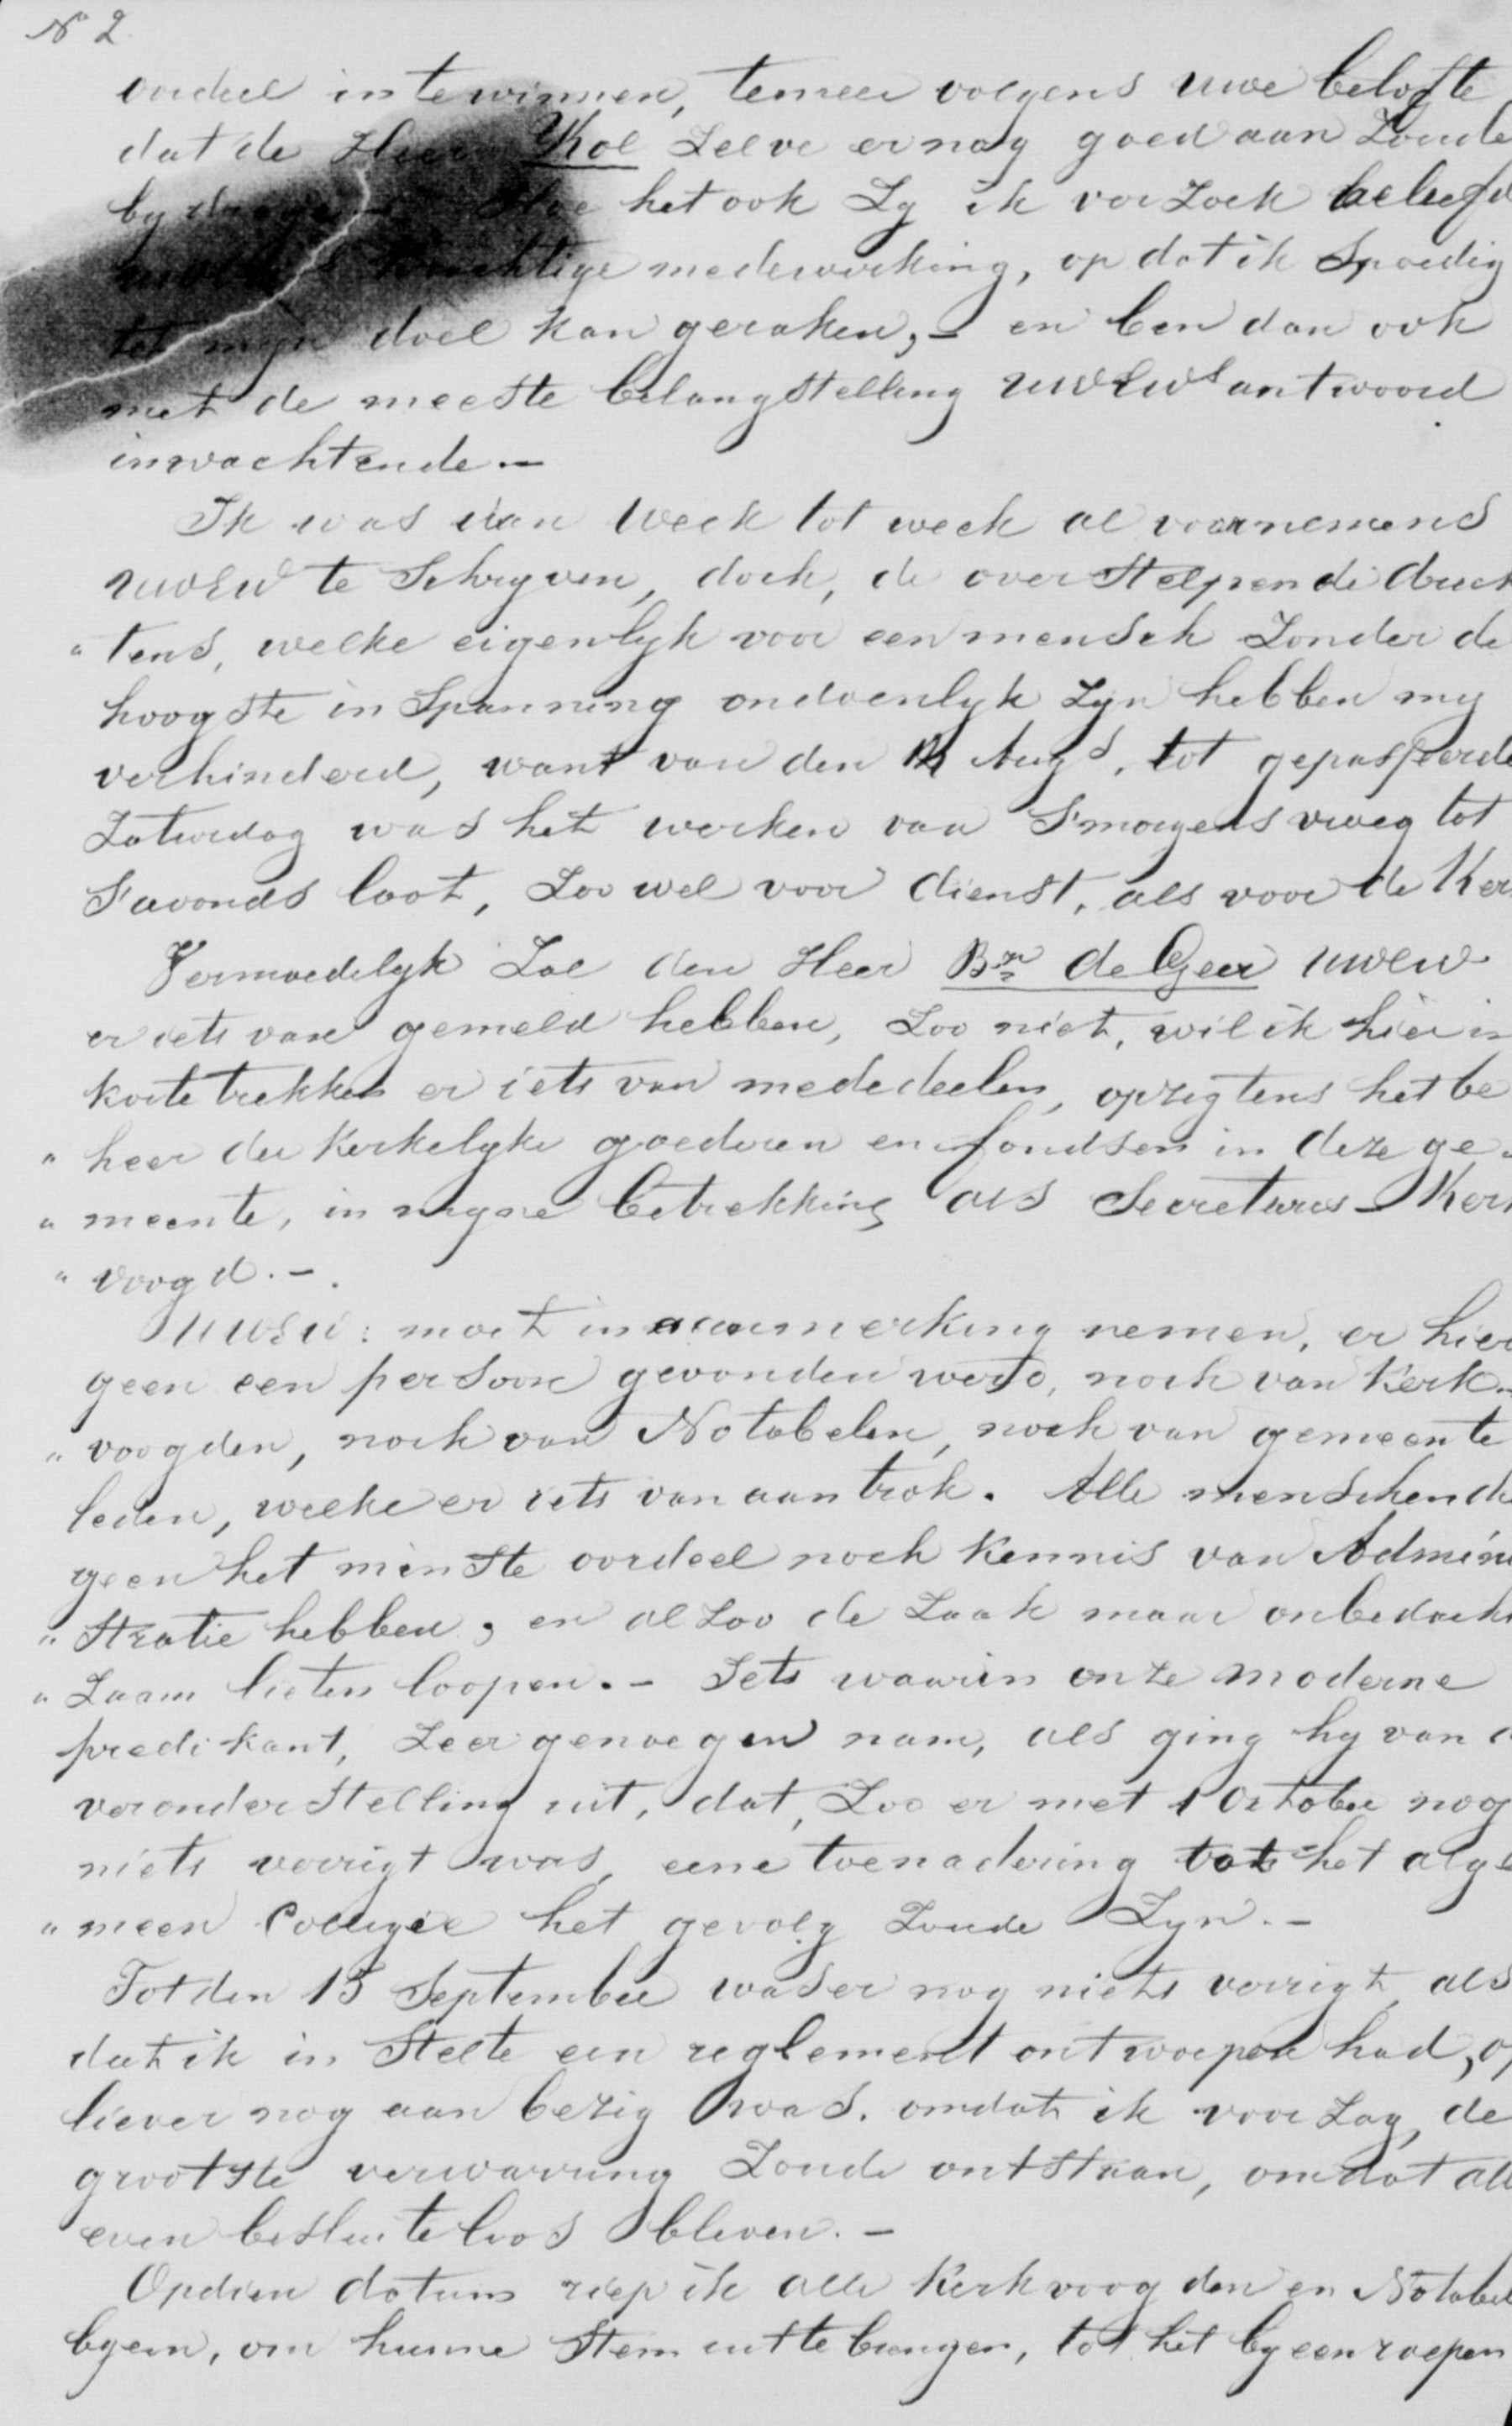 No 2.
oordeel in te winnen, temeer volgens uwe belofte
dat de Heer Kol Zelve er nog goed aan Zoude
by drage - Hoe het ook Zy ik verZoek beleefd
krachtige medewerking, op dat ik Spoedig
tot myn doel kan geraken, - en ben dan ook
met de meeste belangstelling UWEWs antwoord
inwachtende. -
Ik was van Week tot week al voornemend
UWEW te Schryven, doch, de overstelpende druk
" tens, welke eigenlyk voor een mensch Zonder de
hoogste in Spanning ondoenlyk Zyn hebben my
verhinderd, want van den Augs. tot gepasseerde
Zaturdag was het werken van S'morgens vroeg tot
S'avonds laat, Zoo wel voor dienst, als voor de Ker
Vermoedelyk Zal den Heer Bn de Geer UWEW
er iets van gemeld hebben, Zoo niet, wil ik hier in
korte trekken er iets van mededeelen, opzigtens het be
" heer der Kerkelyke goederen en fondsen in deze ge
" meente, in myne betrekking als Secretaris - Kerk
" voogd. -.
UWEW: moet in aanmerking nemen, er hier
geen een persoon gevonden werd, noch van Kerk-
" voogden, noch van Notabelen, noch van gemeente
leden, welke er iets van aantrok. Alle menschen di
geen het minste oordeel noch Kennis van Admini
" Stratie hebben, en al Zoo de Zaak maar onbedacht
" Zaam lieten loopen. - Iets waarin onze moderne
predikant, Zeer genoegen nam, als ging hy van d
veronderstelling uit, dat, Zoo er met 1 October nog
niets verrigt was, eene toenadering tot het alge
" meen Collegie het gevolg Zoude Zyn. -
Tot den 15 September was er nog niets verrigt, als
dat ik in Stilte een reglement ontworpen had, of
liever nog aan bezig was. omdat ik voor Zag, de
grootste verwarring Zoude ontstaan, omdat all
even besluiteloos bleven. -
Op dien datum riep ik alle Kerkvoogden en Notabel
byeen, om hunne Stem uit te brengen, tot het byeenroepen